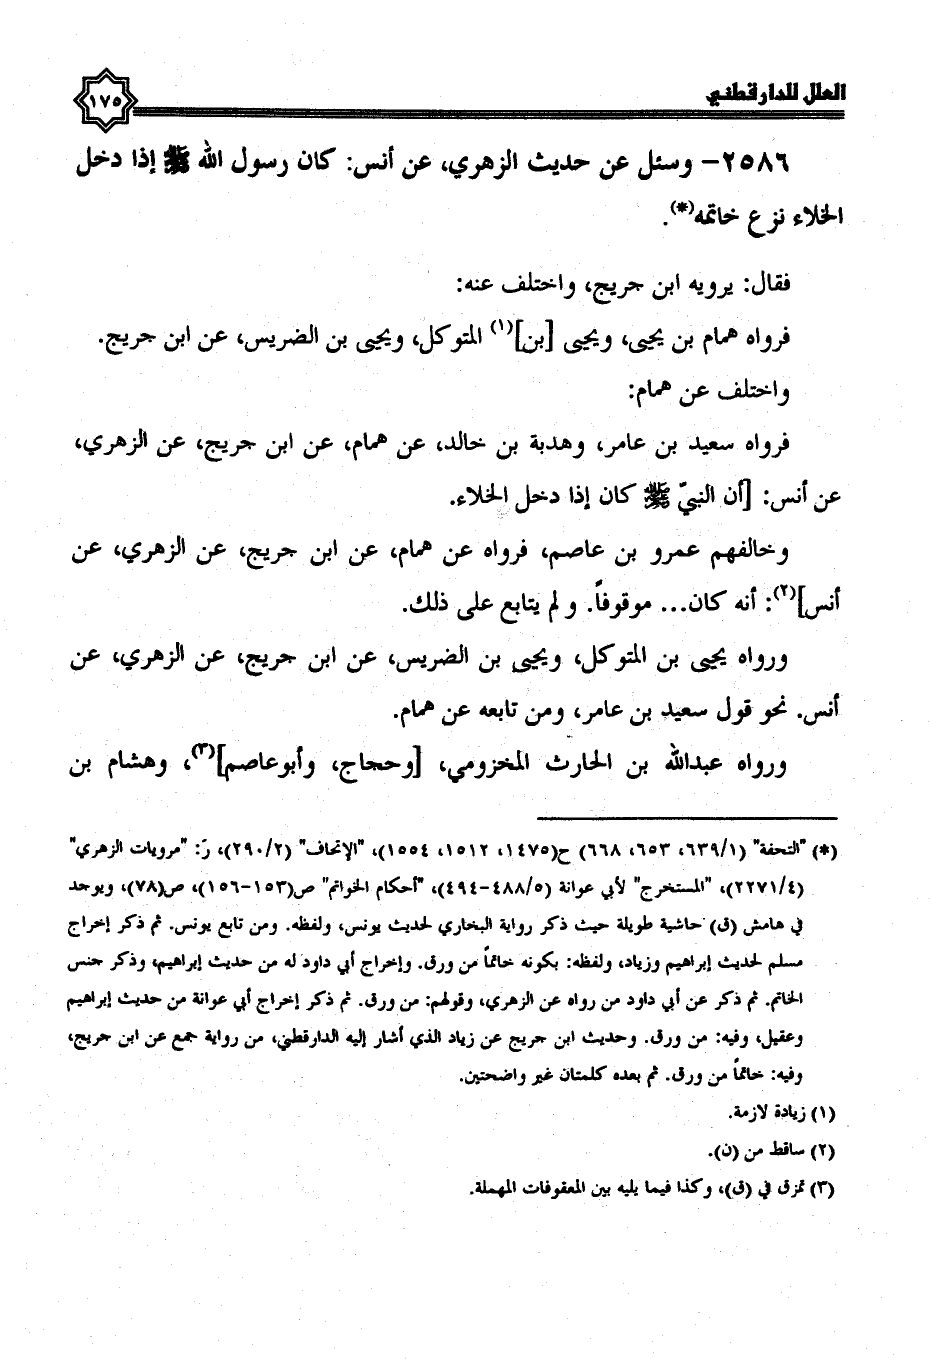 العلل للدارقطني
١٧٥
٢٥٨٦- وسئل عن حديث الزهري، عن أنس: كان رسول الله ﷺ إذا دخل
الخلاء نزع خاتمه(*).
فقال: يرويه ابن جريج، واختلف عنه:
فرواه همام بن يحيى، ويحيى [بن](١) المتوكل، ويحيى بن الضريس، عن ابن جريج.
واختلف عن همام:
فرواه سعيد بن عامر، وهدبة بن خالد، عن همام، عن ابن جريج، عن الزهري،
عن أنس: [أن النبيّ ﷺ كان إذا دخل الخلاء.
وخالفهم عمرو بن عاصم، فرواه عن همام، عن ابن جريج، عن الزهري، عن
أنس](٢): أنه كان... موقوفاً. ولم يتابع على ذلك.
ورواه يحيى بن المتوكل، ويحيى بن الضريس، عن ابن جريج، عن الزهري، عن
أنس. نحو قول سعيد بن عامر، ومن تابعه عن همام.
ورواه عبدالله بن الحارث المخزومي، [وحجاج، وأبوعاصم](٣)، وهشام بن
(*) "التحفة" (٦٣٩/١، ٦٥٣، ٦٦٨) ح(١٤٧٥، ١٥١٢، ١٥٥٤)، "الإتحاف" (٢٩٠/٢)، رَ: "مرويات الزهري"
(٢٢٧١/٤)، "المستخرج" لأبي عوانة (٤٨٨/٥-٤٩٤)، "أحكام الخواتم" ص(١٥٣-١٥٦)، ص(٧٨)، ويوجد
في هامش (ق) حاشية طويلة حيث ذكر رواية البخاري لحديث يونس، ولفظه. ومن تابع يونس. ثم ذكر إخراج
مسلم لحديث إبراهيم وزياد، ولفظه: بكونه خاتماً من ورق. وإخراج أبي داود له من حديث إبراهيم، وذكر حنس
الخاتم. ثم ذكر عن أبي داود من رواه عن الزهري، وقولهم: من ورق. ثم ذكر إخراج أبي عوانة من حديث إبراهيم
وعقيل، وفيه: من ورق. وحديث ابن جريج عن زياد الذي أشار إليه الدارقطني، من رواية جمع عن ابن جريج،
وفيه: خاتماً من ورق. ثم بعده كلمتان غير واضحتين.
(١) زيادة لازمة.
(٢) ساقط من (ن).
(٣) تمزق في (ق)، وكذا فيما يليه بين المعقوفات المهملة.